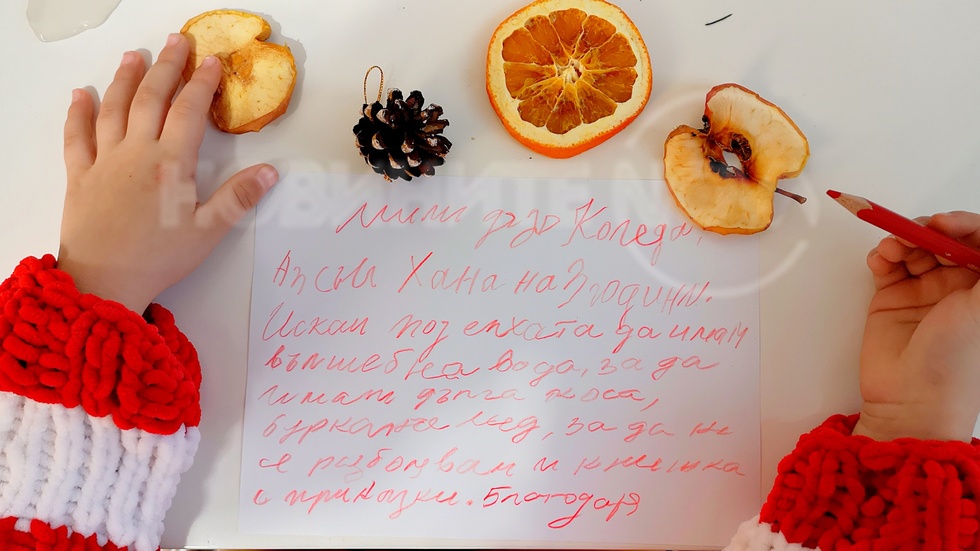 Мили дядо Коледа,
Аз съм Хана на 3 години.
Искам под елхата да имам
вълшебна вода, за да
имам дълга коса,
бурканче мед, за да не
се разболявам и книжка
с приказки. Благодаря
НОВИНИТЕ N